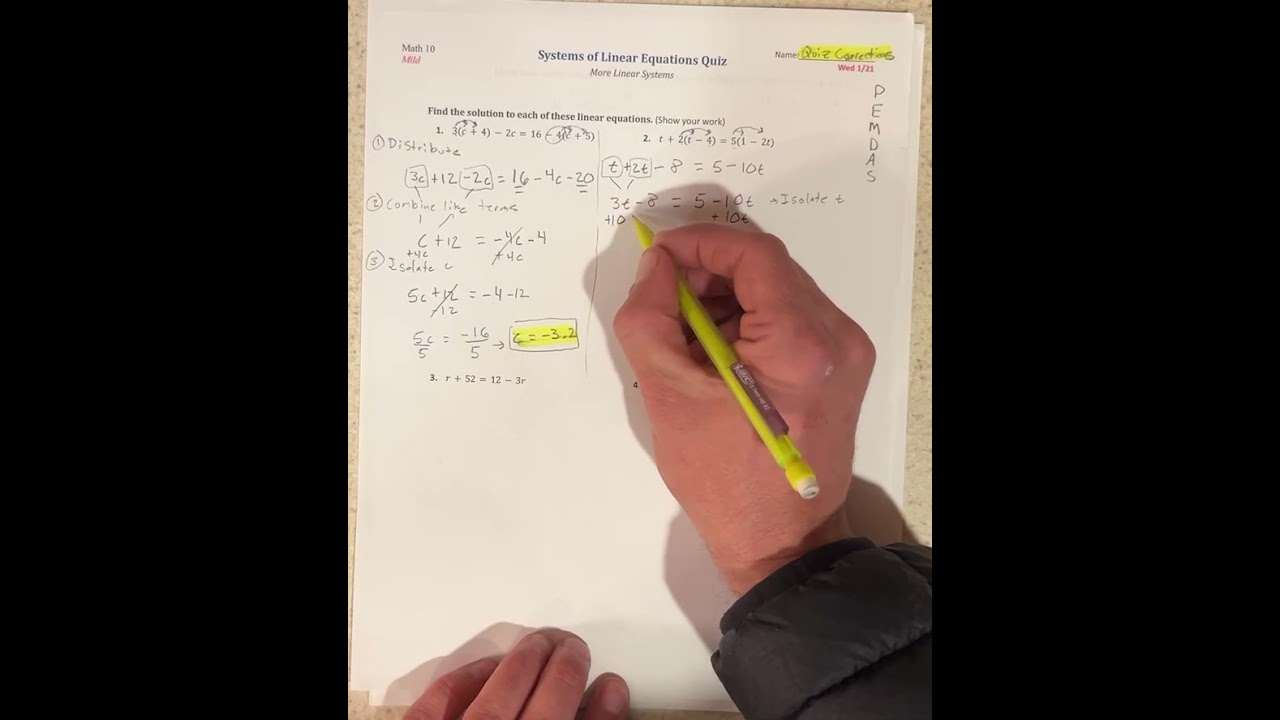 Math 10
Mild
Systems of Linear Equations Quiz
More Linear Systems
Name: Quiz Corrections
Wed 1/21
P
E
M
D
A
S
Find the solution to each of these linear equations. (Show your work)
1. 3(c + 4) − 2c = 16 − 4(c + 5)
① Distribute
3c +12 -2c = 16 - 4c - 20
② Combine like terms
c + 12 = -4c - 4
+4c +4c
③ Isolate c
5c + 12 = -4 -12
-12
5c/5 = -16/5 → c = -3.2
2. t + 2(t − 4) = 5(1 − 2t)
t + 2t - 8 = 5 - 10t
3t - 8 = 5 - 10t → Isolate t
+10 + 10t
3. r + 52 = 12 − 3r
4